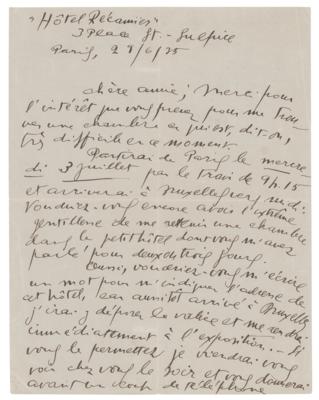 "Hôtel Récamier"
3 Place St-Sulpice
Paris, 28/6/35
chère amie, Merci pour
l'intérêt que vous prenez pour me trou
ver une chambre ce qui est, dit-on,
très difficile en ce moment.
Partirai de Paris le mercre
di 3 juillet par le train de 9h.15
et arriverai à Bruxelles midi.
Voudriez-vous encore avoir l'extrême
gentillesse de me retenir une chambre
dans le petit hôtel dont vous m'avez
parlé pour deux ou trois jours.
Aussi, voudriez-vous m'écrire
un mot pour m'indiquer l'adresse de
cet hôtel, car aussitôt arrivé à Bruxelles
j'irai y déposer la valise et me rendrai
immédiatement à l'exposition... Si
vous le permettez je viendrai vous
voir chez vous le soir et vous donnerai
avant un coup de téléphone